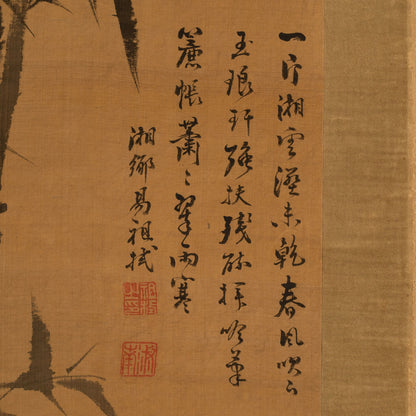 一片湘雲溼未乾春風吹下
玉琅玕強扶殘醉揮吟筆
簾帳蕭〻翠雨寒
湘鄉易祖拭